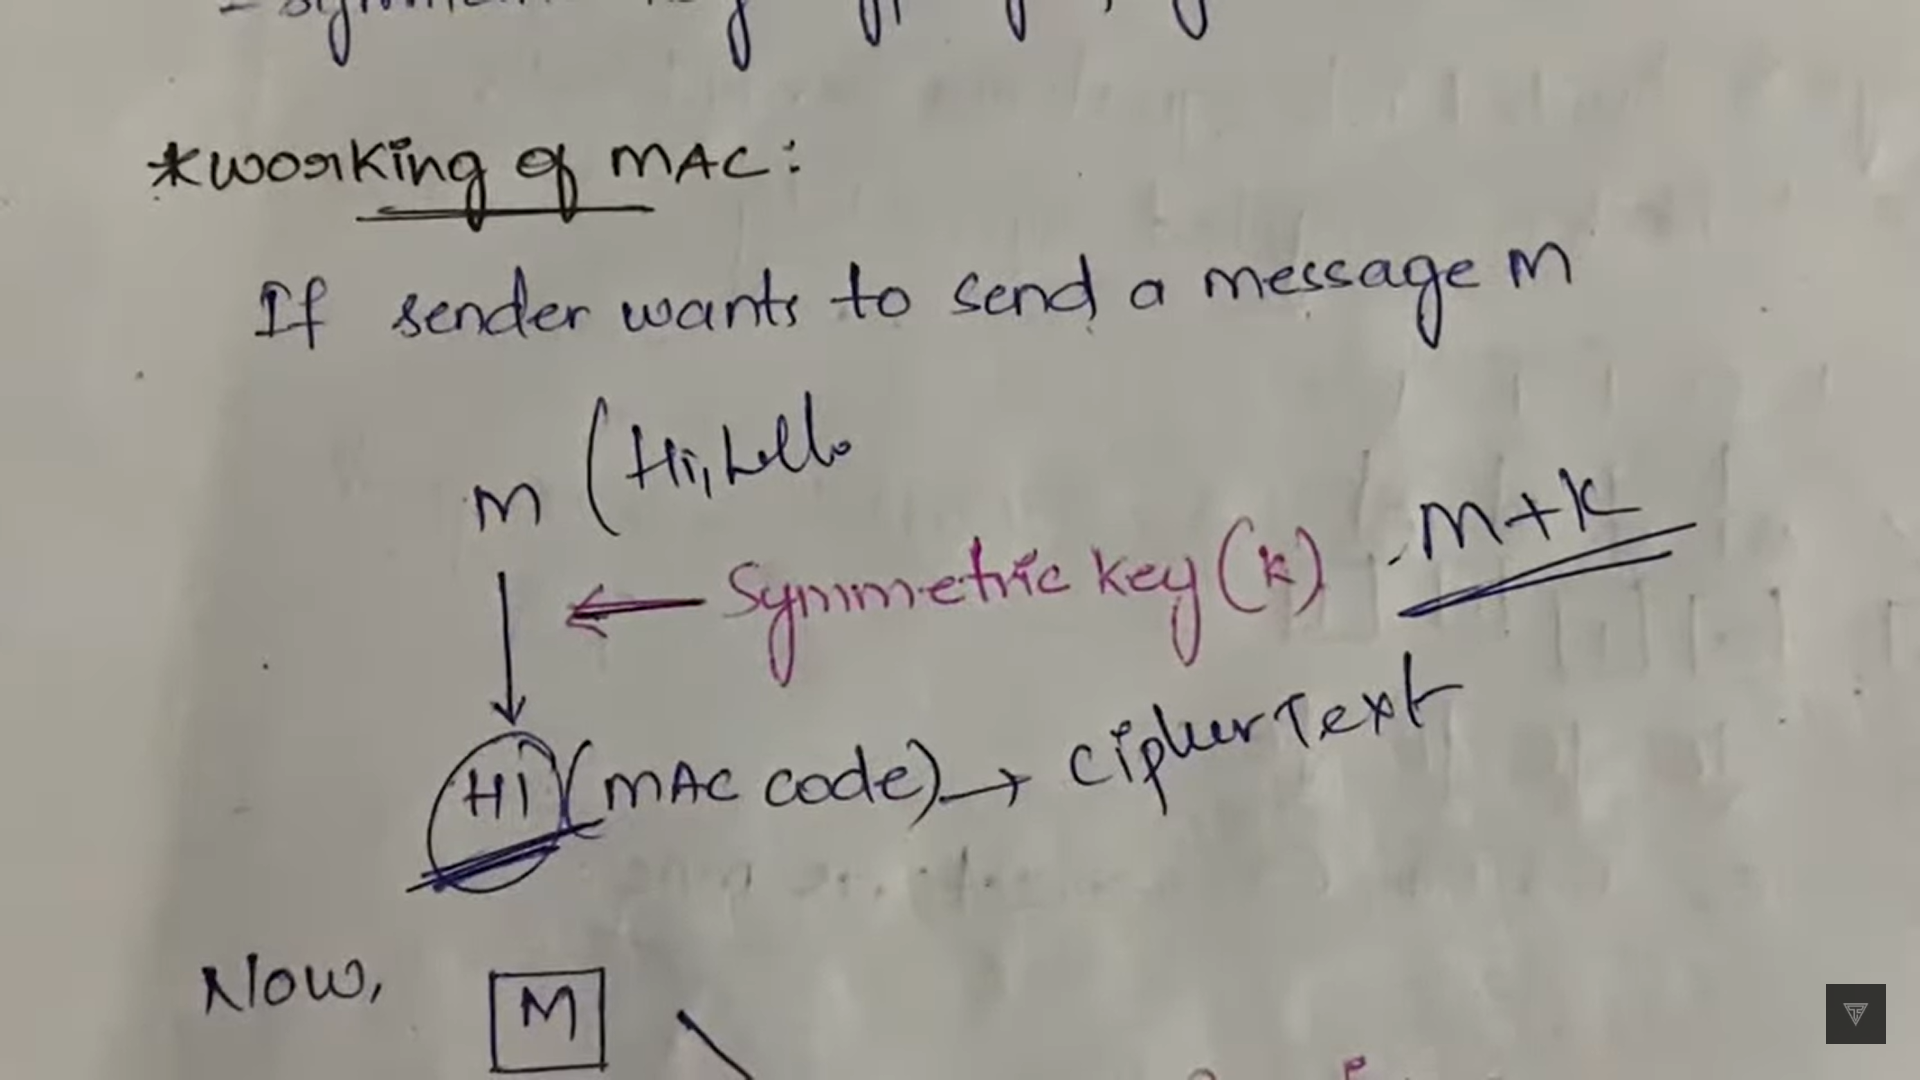 *Working of MAC:
If sender wants to send a message M
M (Hi, hello
← Symmetric key (k) M+K
H1 (MAC code) → cipher Text
Now,
M